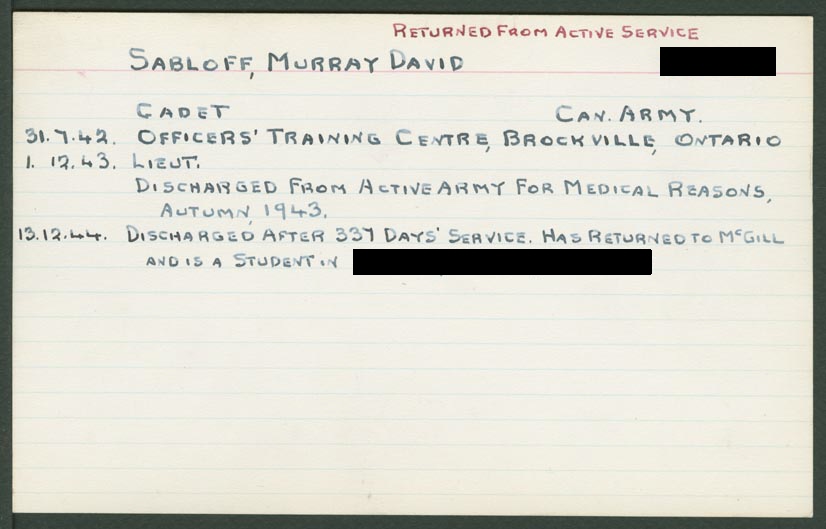 RETURNED FROM ACTIVE SERVICE
SABLOFF, MURRAY DAVID
CADET CAN. ARMY.
31.7.42. OFFICERS' TRAINING CENTRE, BROCKVILLE, ONTARIO
1. 12.43. LIEUT.
DISCHARGED FROM ACTIVE ARMY FOR MEDICAL REASONS,
AUTUMN, 1943.
13.12.44. DISCHARGED AFTER 337 DAYS' SERVICE. HAS RETURNED TO McGILL
AND IS A STUDENT IN